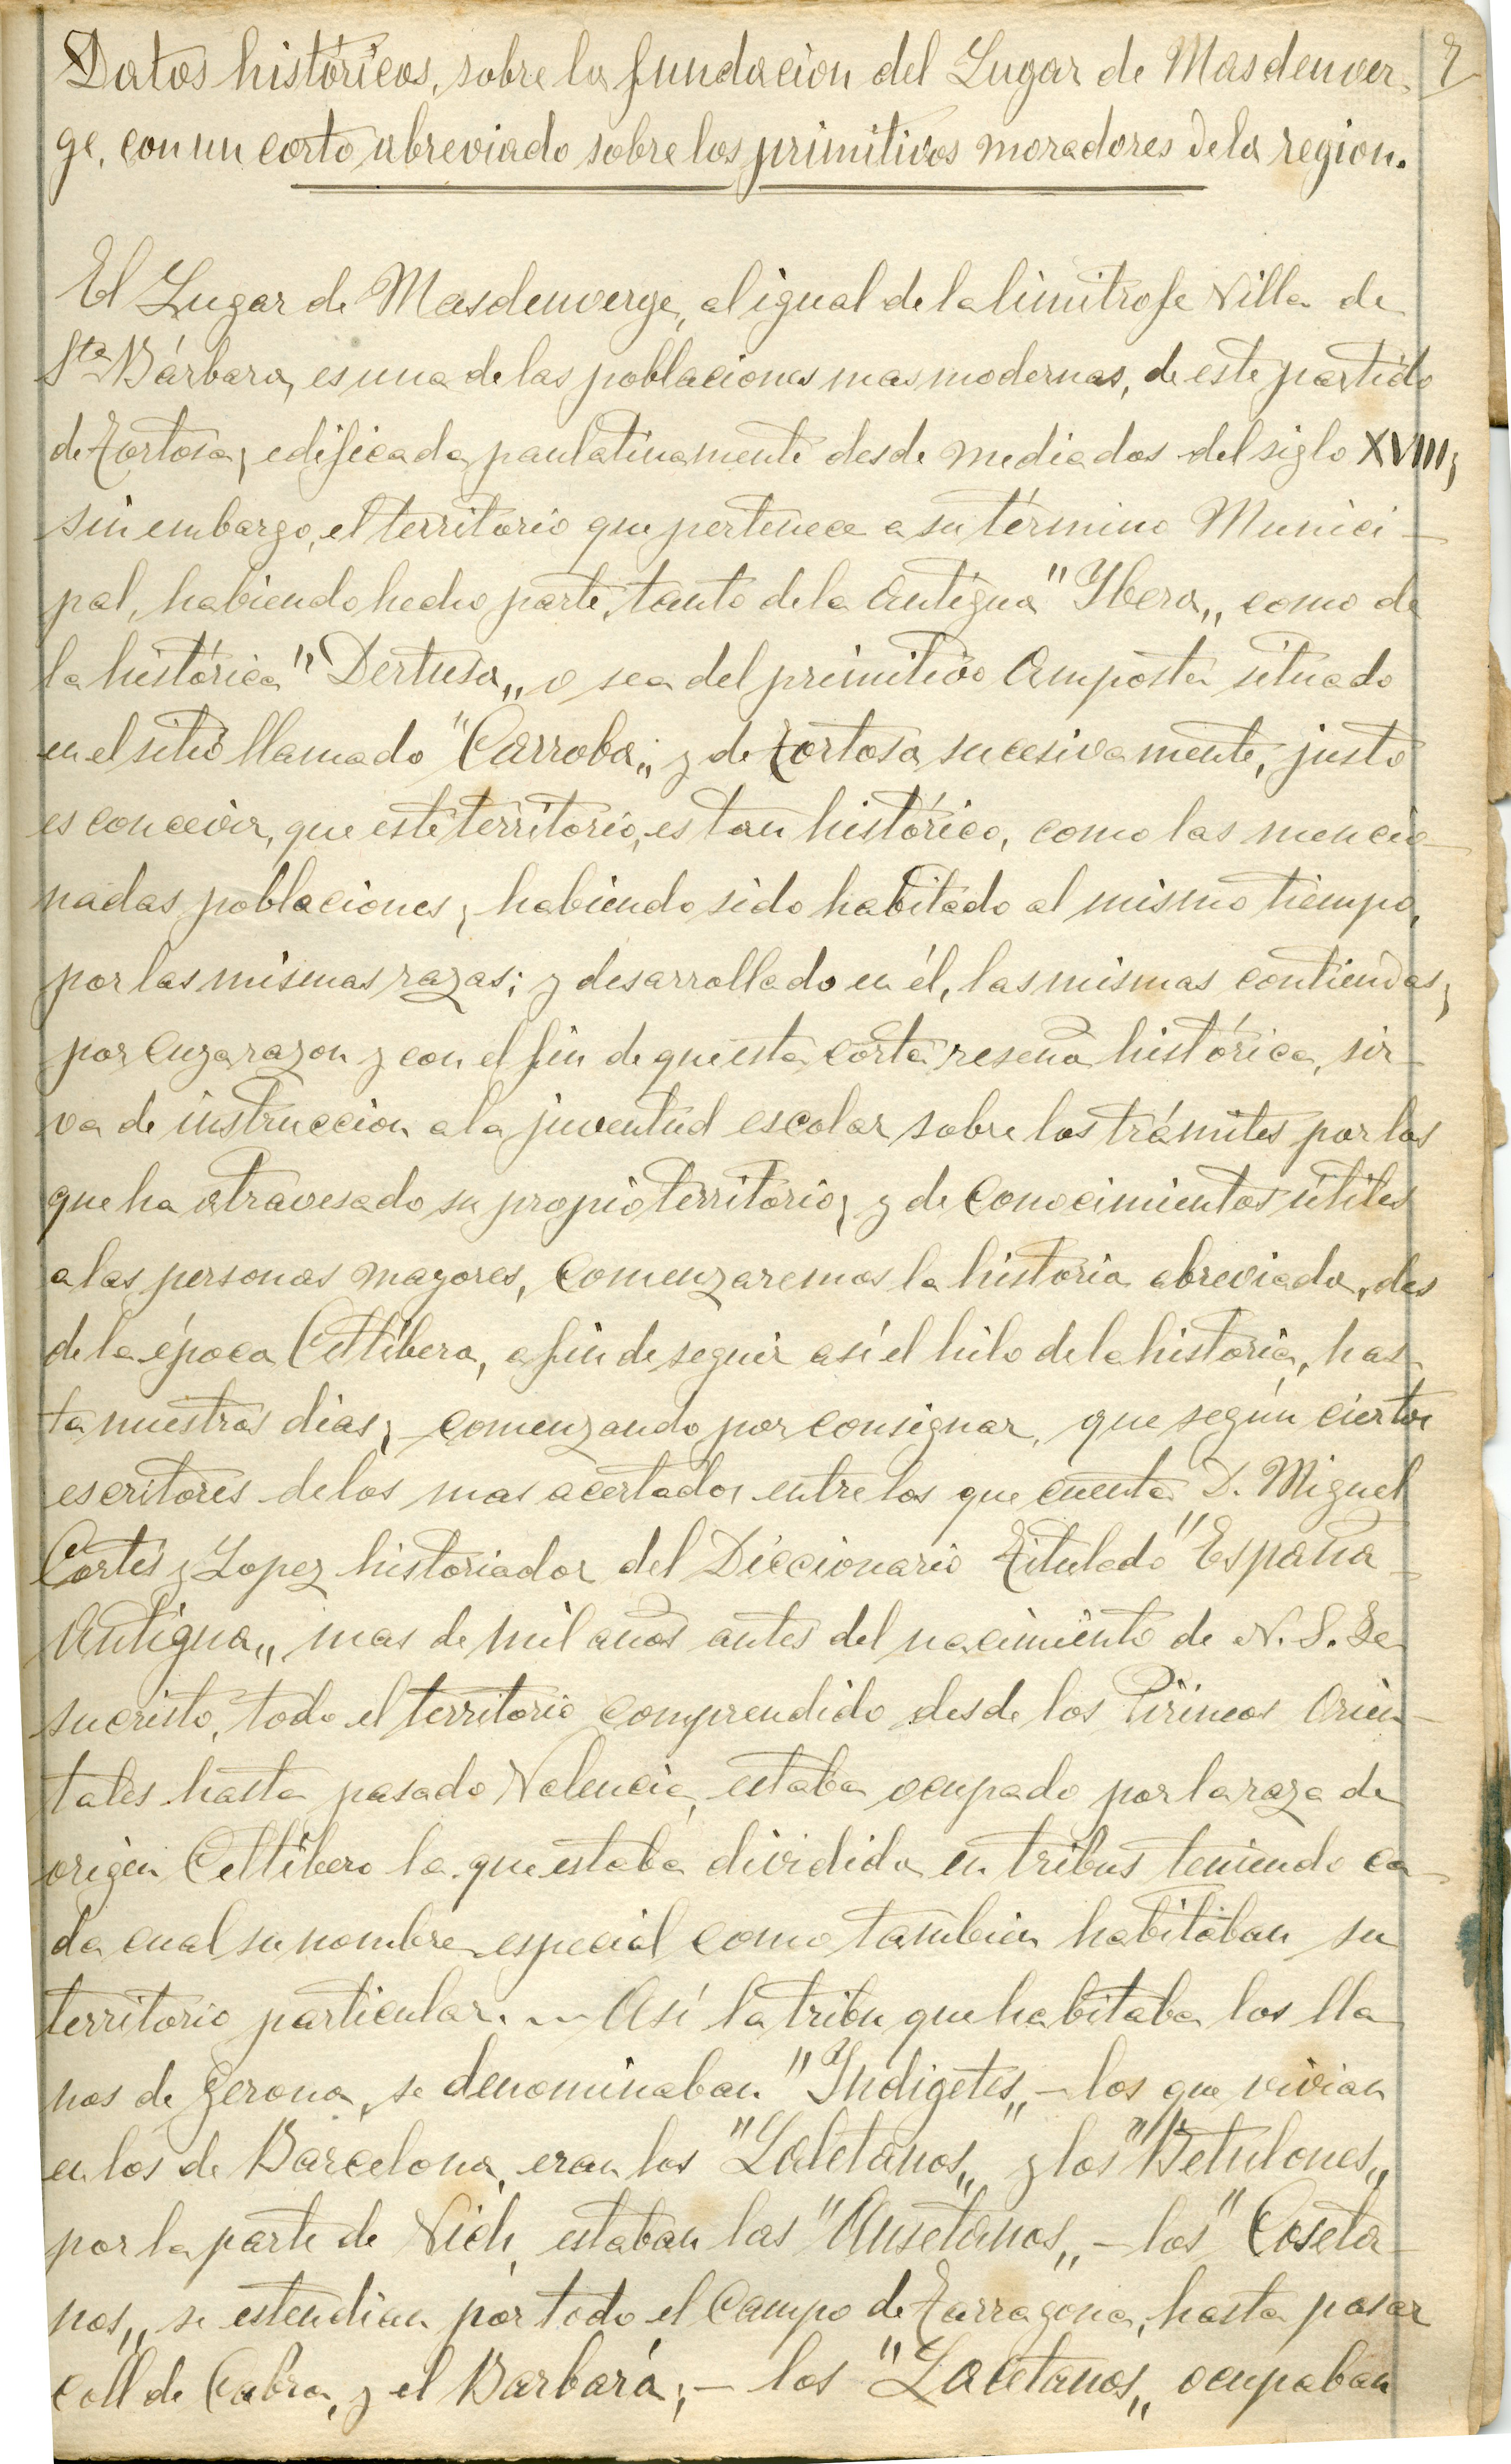 Datos históricos, sobre la fundacion del Lugar de Masdenver- 2
ge, con un corto abreviado sobre los primitivos moradores de la region.
El Lugar de Masdenverge, al igual de la limitrofe Villa de
Sta Bárbara, es una de las poblaciones mas modernas, de este partido
de Tortosa; edificada paulatinamente desde mediados del siglo XVIII;
sin embargo, el territorio que pertenece a su término Munici-
pal, habiendo hecho parte, tanto de la Antigua "Ybera„ como de
la histórica "Dertusa„ o sea del primitivo Amposta situado
en el sitio llamado "Carroba„; y de Tortosa sucesivamente, justo
es concevir, que este territorio, es tan histórico, como las mencio-
nadas poblaciones; habiendo sido habitado al mismo tiempo,
por las mismas razas; y desarrollado en él, las mismas contiendas;
por cuya razon y con el fin de que esta corta reseña histórica, sir-
va de instruccion a la juventud escolar sobre los trámites por los
que ha atravesado su propio territorio; y de conocimientos útiles
a las personas mayores, comenzaremos la historia abreviada, des
de la época Celtíbera, a fin de seguir así el hilo de la historia, has-
ta nuestros dias; comenzando por consignar, que según ciertos
escritores de los mas acertados entre los que cuenta D. Miguel
Cortés y Lopez historiador del Diccionario Titulado "España-
Antigua„ mas de mil años antes del nacimiento de N. S. Je
sucristo, todo el territorio comprendido desde los Pirineos Orien-
tales hasta pasado Valencia, estaba ocupado por la raza de
origen Celtíbero la que estaba dividida en tribus teniendo ca-
da cual su nombre especial como tambien habitában su
territorio particular. — Así la tribu que habitaba los lla-
nos de Gerona, se denominaban "Yndigetes„ - los que vivian
en los de Barcelona, eran los "Laletanos„ y los "Betulones„
por la parte de Vich, estaban las "Ausetanos„ - los "Coseta-
nos„ se estendian por todo el Campo de Tarragona, hasta pasar
Coll de Cabra, y el Barbará; - los "Lacetanos„ ocupaban